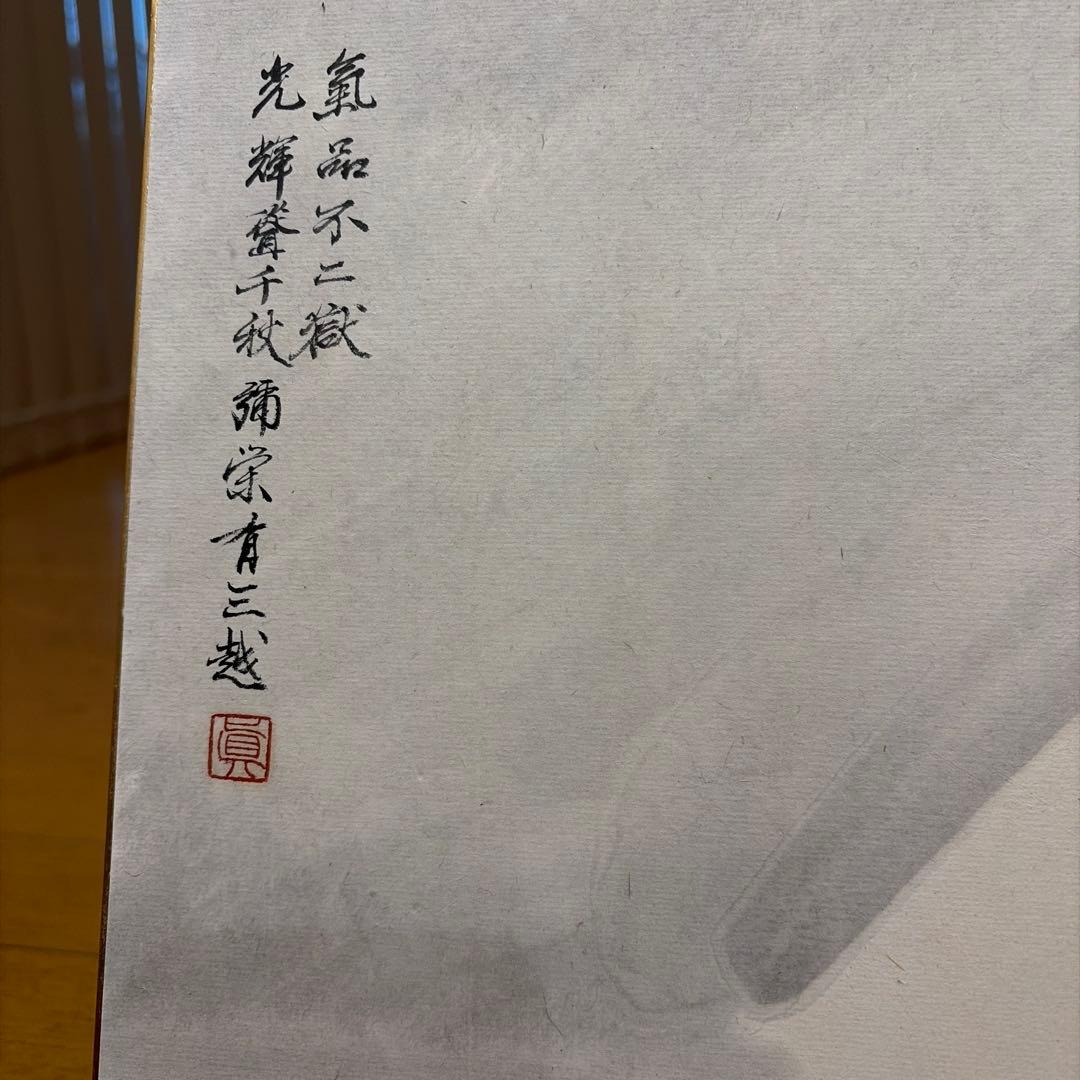 氣品不二嶽
光輝聳千秋 彌栄有三越
眞